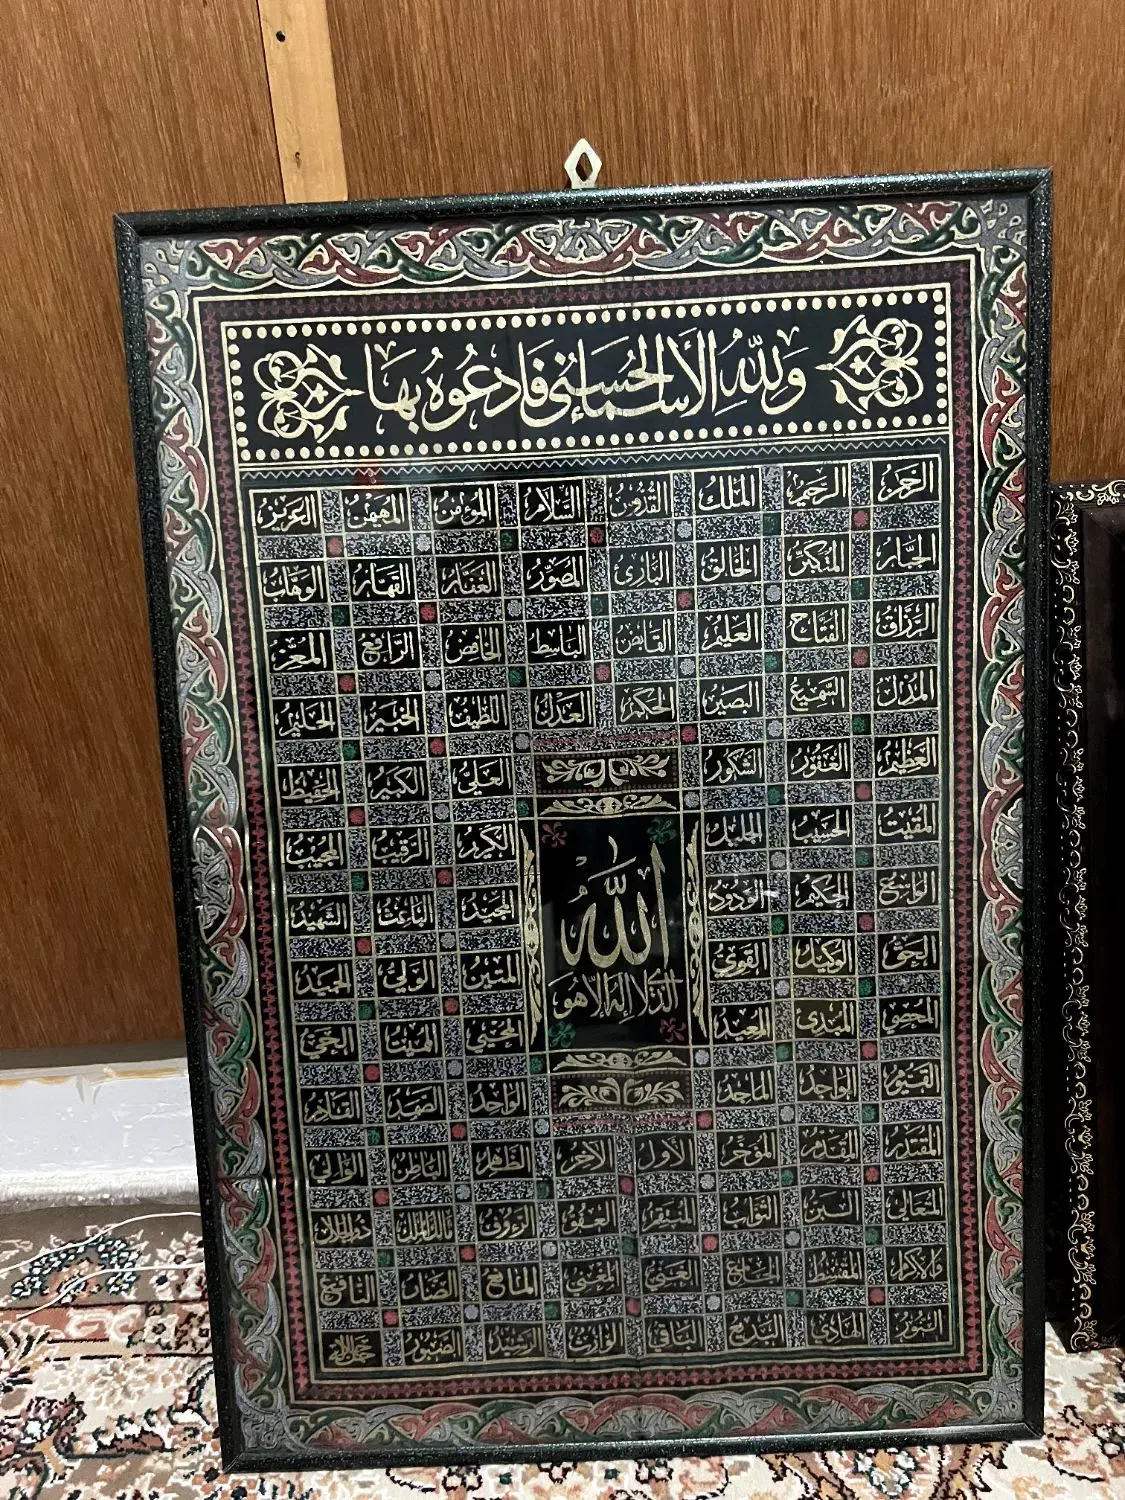 وَلِلَّهِ الْأَسْمَاءُ الْحُسْنَى فَادْعُوهُ بِهَا
الرحمن الرحيم الملك القدوس السلام المؤمن المهيمن العزيز
الجبار المتكبر الخالق البارئ المصور الغفار القهار الوهاب
الرزاق الفتاح العليم القابض الباسط الخافض الرافع المعز
المذل السميع البصير الحكم العدل اللطيف الخبير الحليم
العظيم الغفور الشكور العلي الكبير الحفيظ
المقيت الحسيب الجليل الكريم الرقيب المجيب
الواسع الحكيم الودود المجيد الباعث الشهيد
الله
الذي لا إله إلا هو
الحق الوكيل القوي المتين الولي الحميد
المحصي المبدئ المعيد المحيي المميت الحي
القيوم الواجد الماجد الواحد الصمد القادر
المقتدر المقدم المؤخر الأول الآخر الظاهر الباطن الوالي
المتعالي البر التواب المنتقم العفو الرؤوف مالك الملك ذو الجلال
والإكرام المقسط الجامع الغني المغني المانع الضار النافع
النور الهادي البديع الباقي الوارث الرشيد الصبور